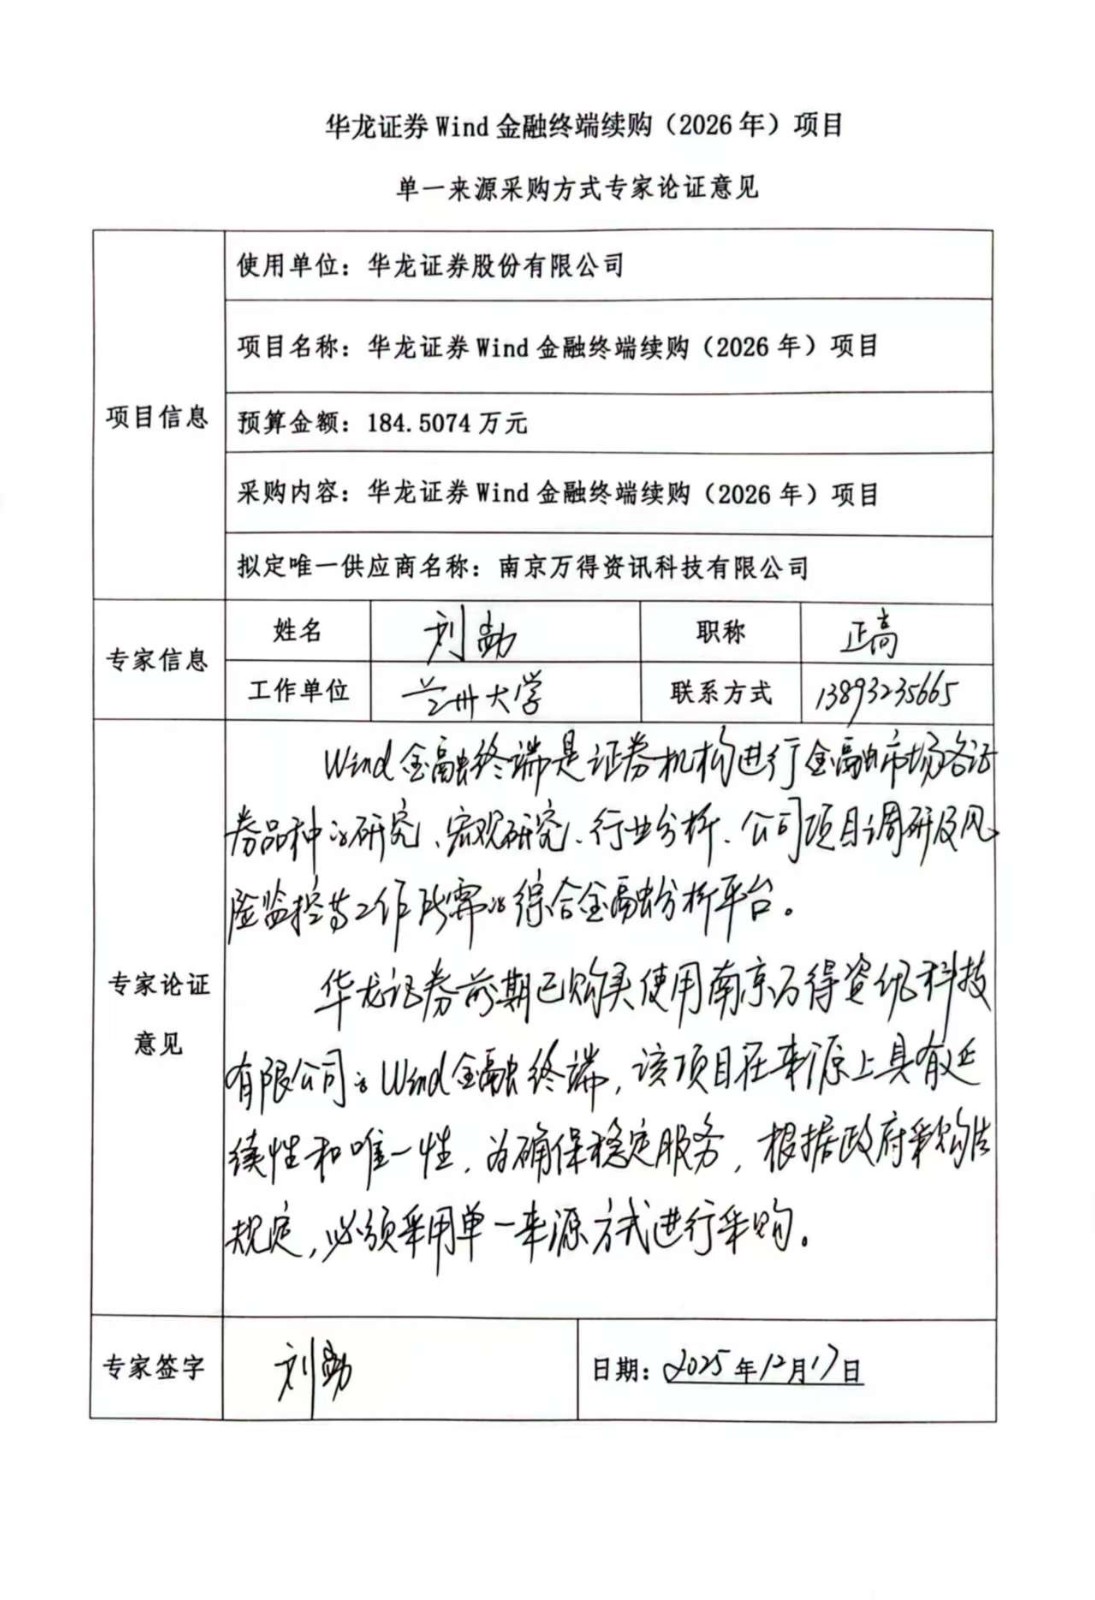 华龙证券 Wind 金融终端续购（2026 年）项目
单一来源采购方式专家论证意见
项目信息
使用单位：华龙证券股份有限公司
项目名称：华龙证券 Wind 金融终端续购（2026 年）项目
预算金额：184.5074 万元
采购内容：华龙证券 Wind 金融终端续购（2026 年）项目
拟定唯一供应商名称：南京万得资讯科技有限公司
专家信息
姓名 刘勋 职称 正高
工作单位 兰州大学 联系方式 13893235665
专家论证
意见
Wind金融终端是证券机构进行金融市场各证
券品种的研究、宏观研究、行业分析、公司项目调研及风
险监控等工作所需的综合金融分析平台。
华龙证券前期已购买使用南京万得资讯科技
有限公司的Wind金融终端，该项目在来源上具有延
续性和唯一性，为确保稳定服务，根据政府采购法
规定，必须采用单一来源方式进行采购。
专家签字 刘勋 日期：2025年12月17日